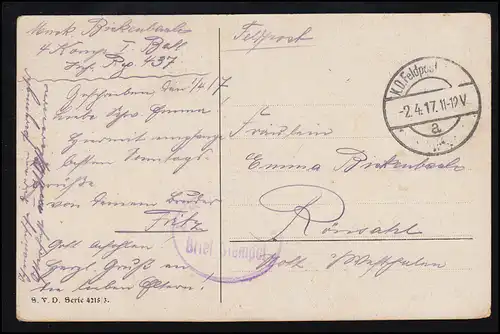 Musk. Birkenbach
4 Komp. I. Batl.
Inf. Rg. 437
Geschrieben den 1/4 17
Liebe Schw. Emma
Hiermit empfange
besten Sonntags-
grüße
von deinem Bruder
Fritz
Gott befohlen!
Herzl. Gruß an
die lieben Eltern!
S. V. D. Serie 4215/3.
Feldpost
K.D. Feldpost
-2.4.17.11-12V
a
Fräulein
Emma Birkenbach
Rönsahl
Westfalen
Brief Stempel